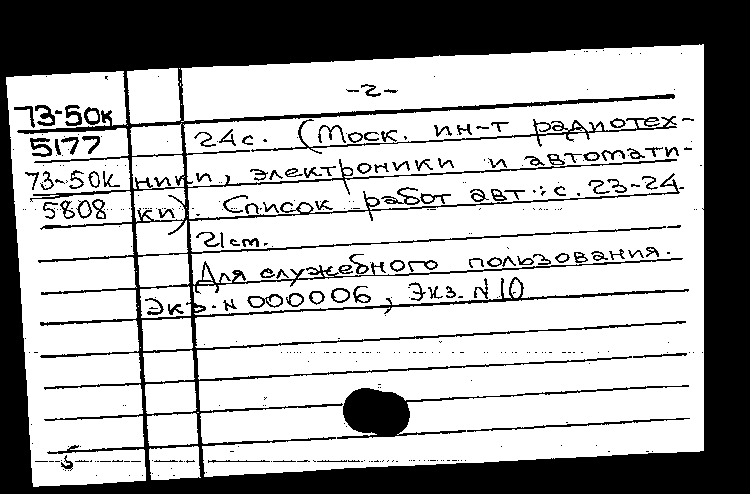 -2-
73-50к
5177
24с. (Моск. ин-т радиотех-
73-50к ники, электроники и автомати-
5808 ки). Список работ авт.: с. 23-24.
21 см.
Для служебного пользования.
Экз. N 000006, Экз. N 10